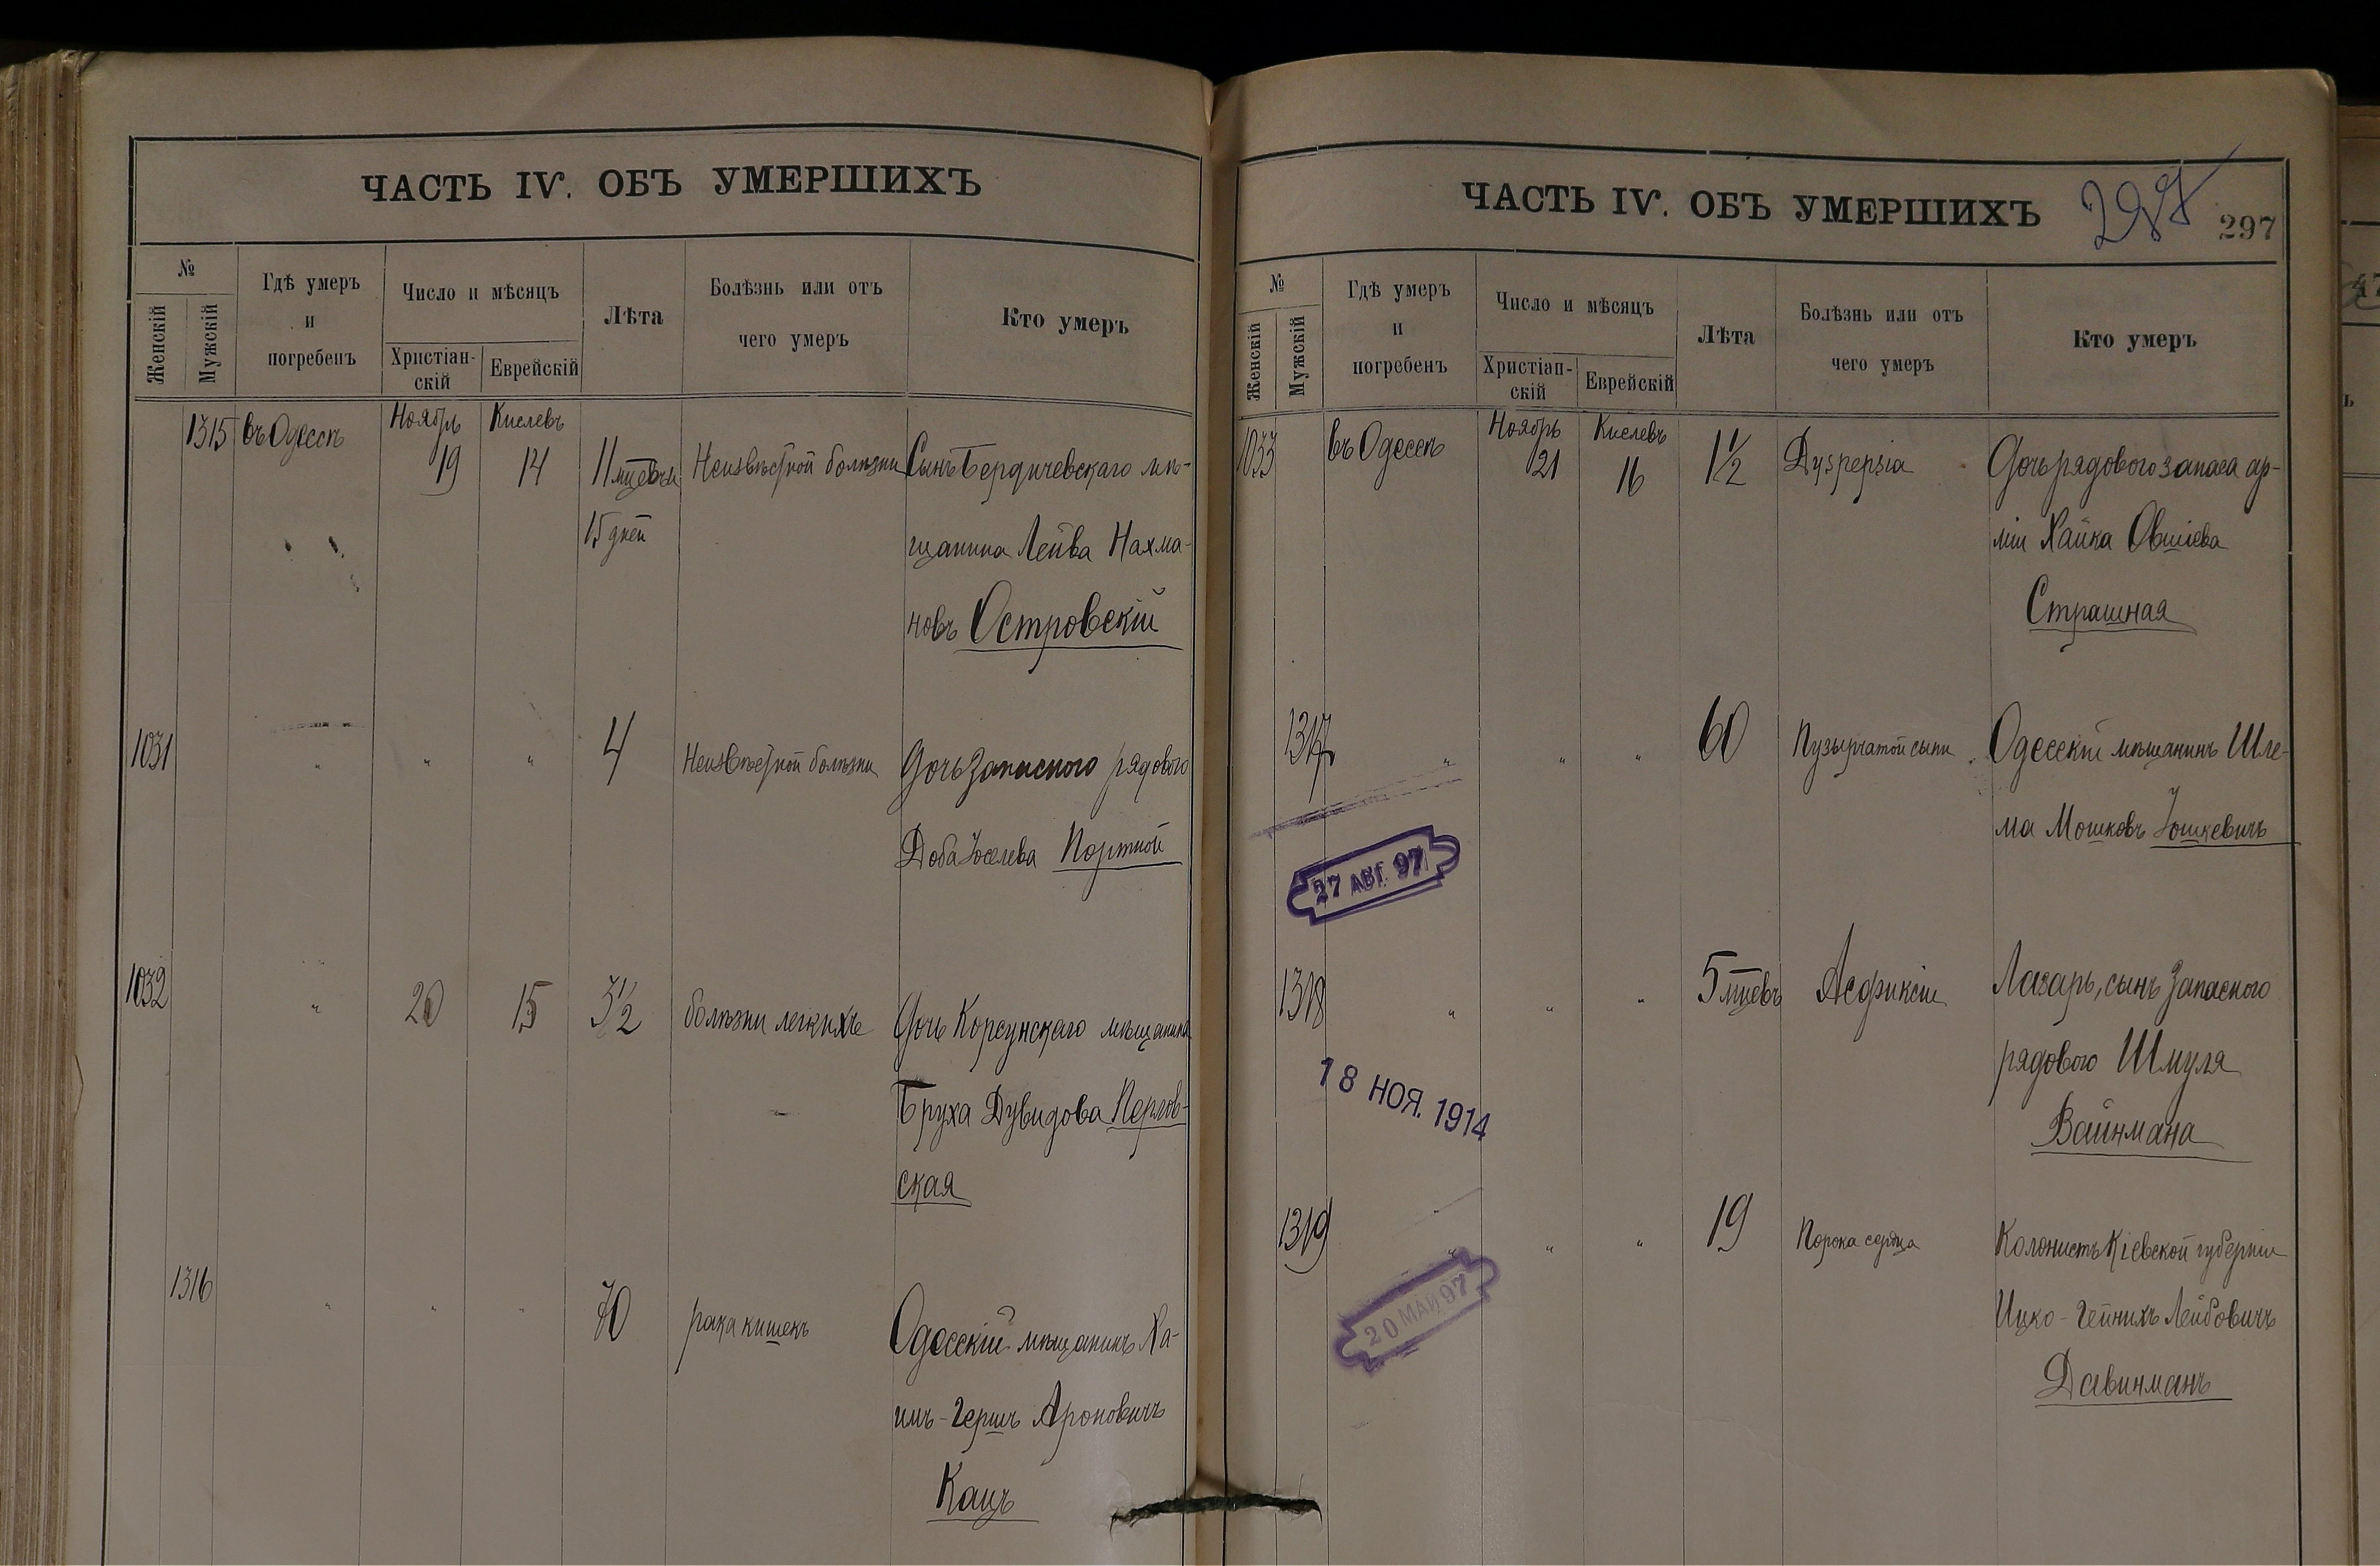 ЧАСТЬ IV. ОБЪ УМЕРШИХЪ
№
Женскій
Мужскій
Гдѣ умеръ
и
погребенъ
Число и мѣсяцъ
Христіан-
скій
Еврейскій
Лѣта
Болѣзнь или отъ
чего умеръ
Кто умеръ
1315 въ Одессѣ Ноябрь 19 Кислевъ 14 11 мцевъ и Неизвѣстной болѣзни Сынъ Бердичевскаго мѣ-
15 дней щанина Лейба Нахма-
новъ Островскій
1031 " " " 4 Неизвѣстной болѣзни Дочь запасного рядового
Доба Іоселева Портной
1032 " 20 15 3½ болѣзни легкихъ Дочь Корсунскаго мѣщанина
Бруха Дувидова
ская
1316 " " " 70 рака кишекъ Одесскій мѣщанинъ Ха-
имъ-Гершъ Ароновичъ
Кацъ
ЧАСТЬ IV. ОБЪ УМЕРШИХЪ
297
297
№
Женскій
Мужскій
Гдѣ умеръ
и
погребенъ
Число и мѣсяцъ
Христіан-
скій
Еврейскій
Лѣта
Болѣзнь или отъ
чего умеръ
Кто умеръ
1033 въ Одессѣ Ноябрь 21 Кислевъ 16 1½ Dyspepsia Дочь рядового запаса ар-
міи Хайка Овшіева
Страшная
1317 " " " 60 Пузырчатой сыпи Одесскій мѣщанинъ Шле-
ма Мошковъ Іошкевичъ
27 АВГ. 97
1318 " " " 5 мцевъ Асфиксіи Лазарь, сынъ запасного
рядового Шмуля
Вайнмана
18 НОЯ. 1914
1319 " " " 19 Порока сердца Колонистъ Кіевской губерніи
Ицко-Гейнихъ Лейбовичъ
Давинманъ
20 МАЙ 97